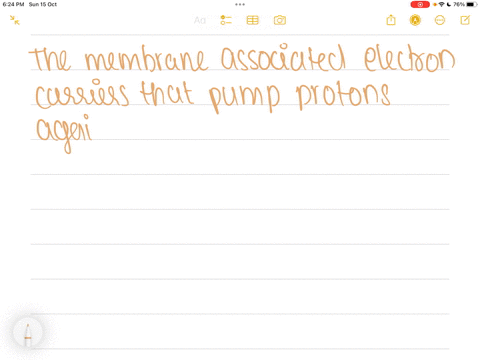 6:24 PM Sun 15 Oct
76%
Aa
The membrane associated electron
carriers that pump protons
ageri